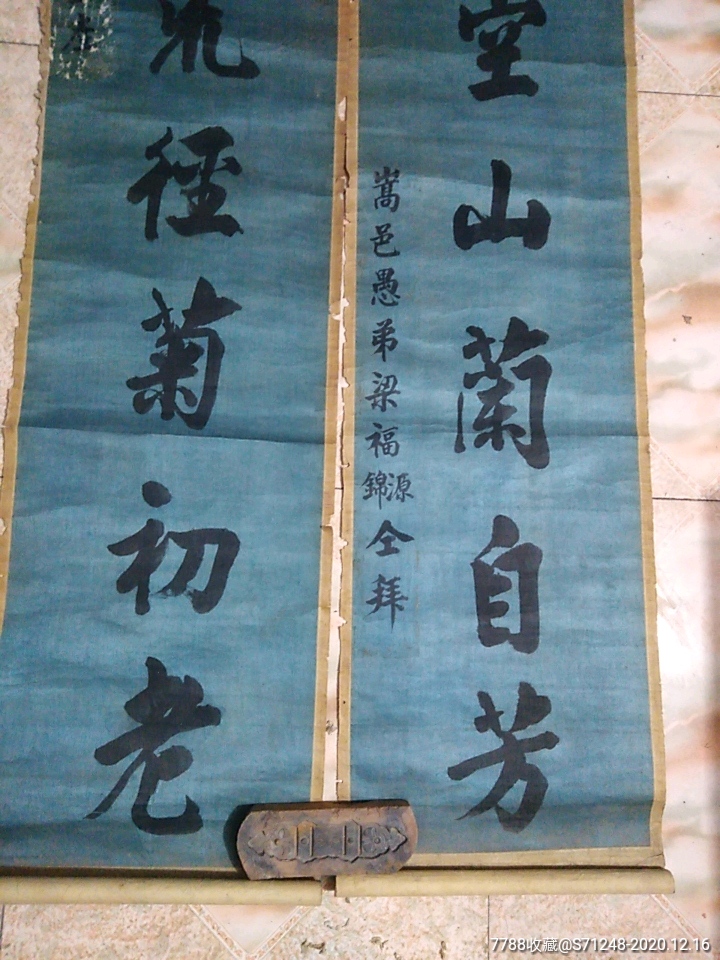 空山蘭自芳
嵩邑愚弟梁福源錦仝拜
徑菊初老
7788收藏@S71248-2020.12.16